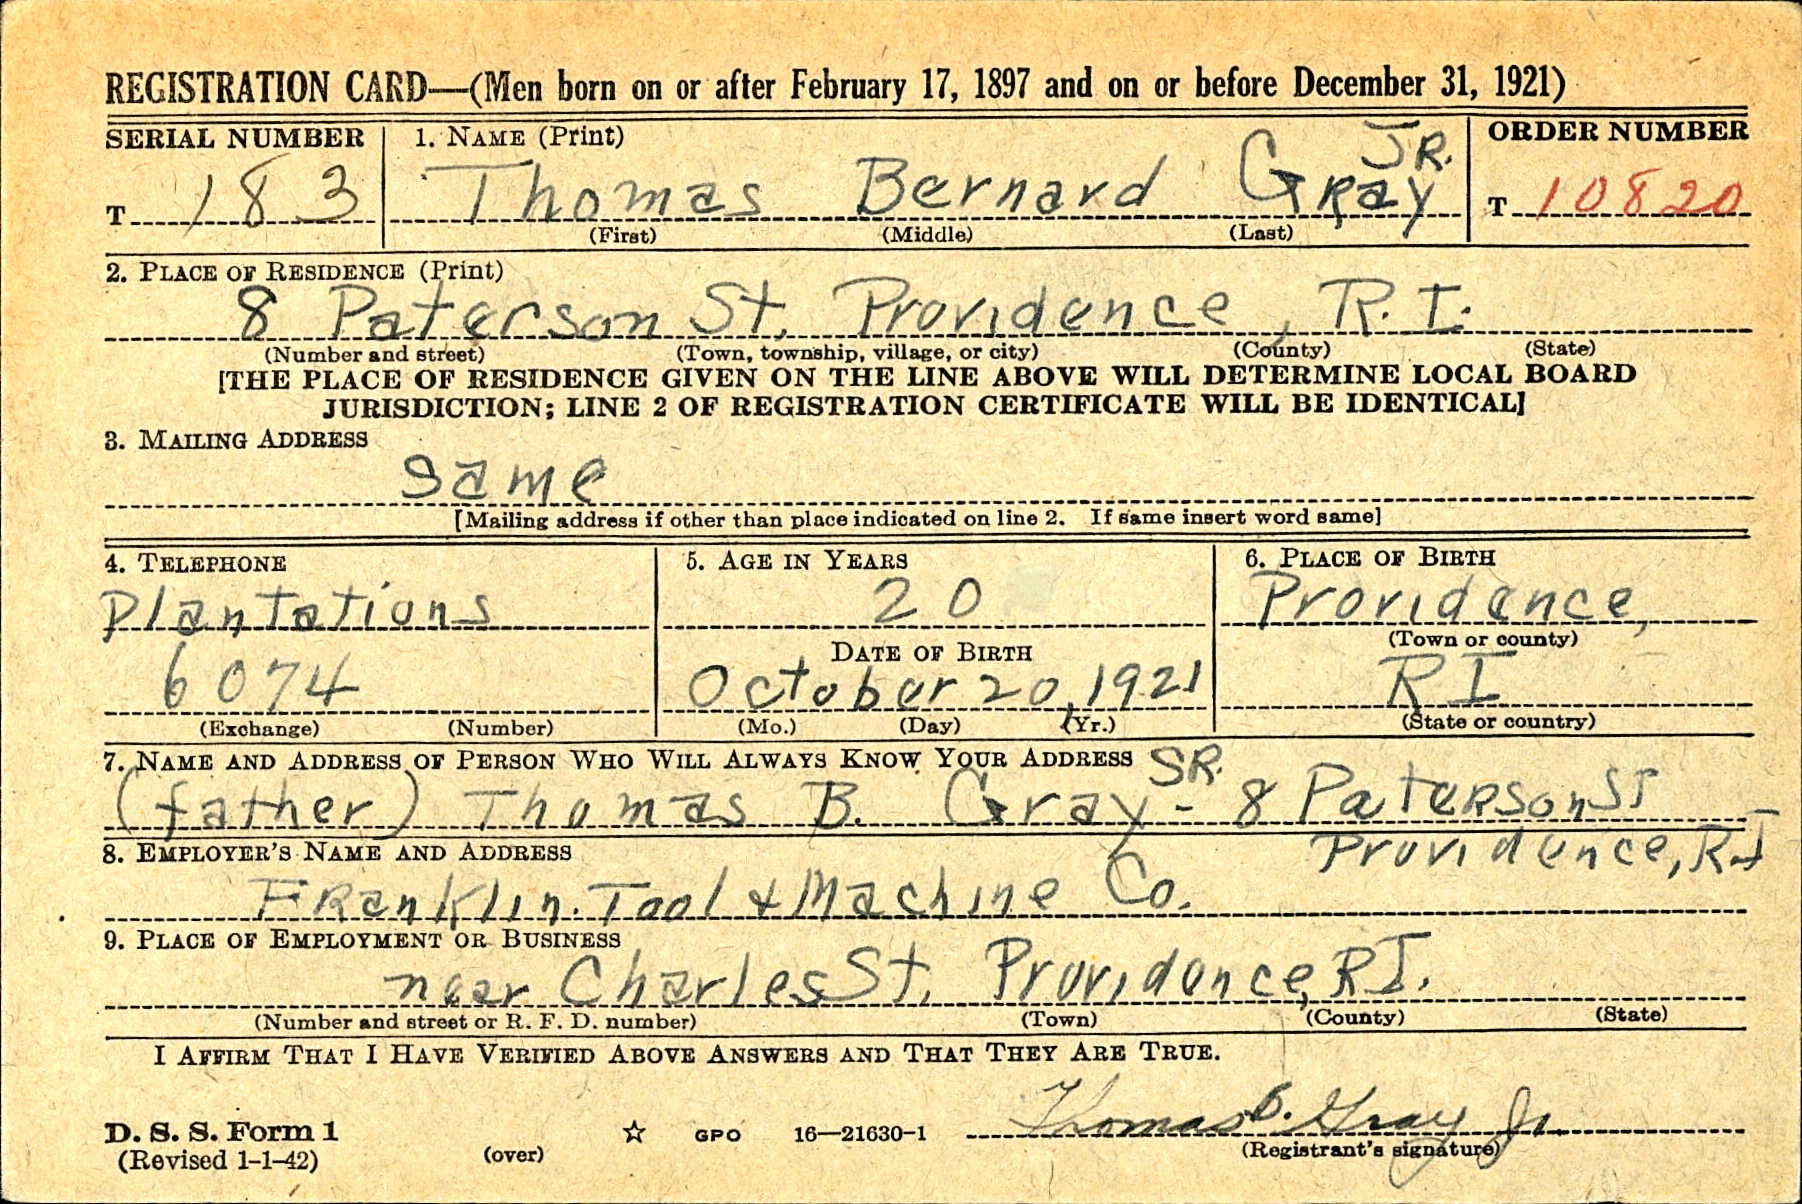 REGISTRATION CARD—(Men born on or after February 17, 1897 and on or before December 31, 1921)
SERIAL NUMBER 1. NAME (Print) ORDER NUMBER
JR.
T 183 Thomas Bernard Gray T 10820
(First) (Middle) (Last)
2. PLACE OF RESIDENCE (Print)
8 Paterson St. Providence, R.I.
(Number and street) (Town, township, village, or city) (County) (State)
[THE PLACE OF RESIDENCE GIVEN ON THE LINE ABOVE WILL DETERMINE LOCAL BOARD
JURISDICTION; LINE 2 OF REGISTRATION CERTIFICATE WILL BE IDENTICAL]
3. MAILING ADDRESS
same
[Mailing address if other than place indicated on line 2. If same insert word same]
4. TELEPHONE 5. AGE IN YEARS 6. PLACE OF BIRTH
Plantations 20 Providence,
DATE OF BIRTH (Town or county)
6074 October 20, 1921 RI
(Exchange) (Number) (Mo.) (Day) (Yr.) (State or country)
7. NAME AND ADDRESS OF PERSON WHO WILL ALWAYS KNOW YOUR ADDRESS SR.
(father) Thomas B. Gray - 8 Paterson ST
8. EMPLOYER'S NAME AND ADDRESS Providence, RI
Franklin Tool & Machine Co.
9. PLACE OF EMPLOYMENT OR BUSINESS
near Charles St. Providence, RI.
(Number and street or R. F. D. number) (Town) (County) (State)
I AFFIRM THAT I HAVE VERIFIED ABOVE ANSWERS AND THAT THEY ARE TRUE.
Thomas B. Gray Jr.
D. S. S. Form 1 GPO 16—21630-1 (Registrant's signature)
(Revised 1-1-42) (over)